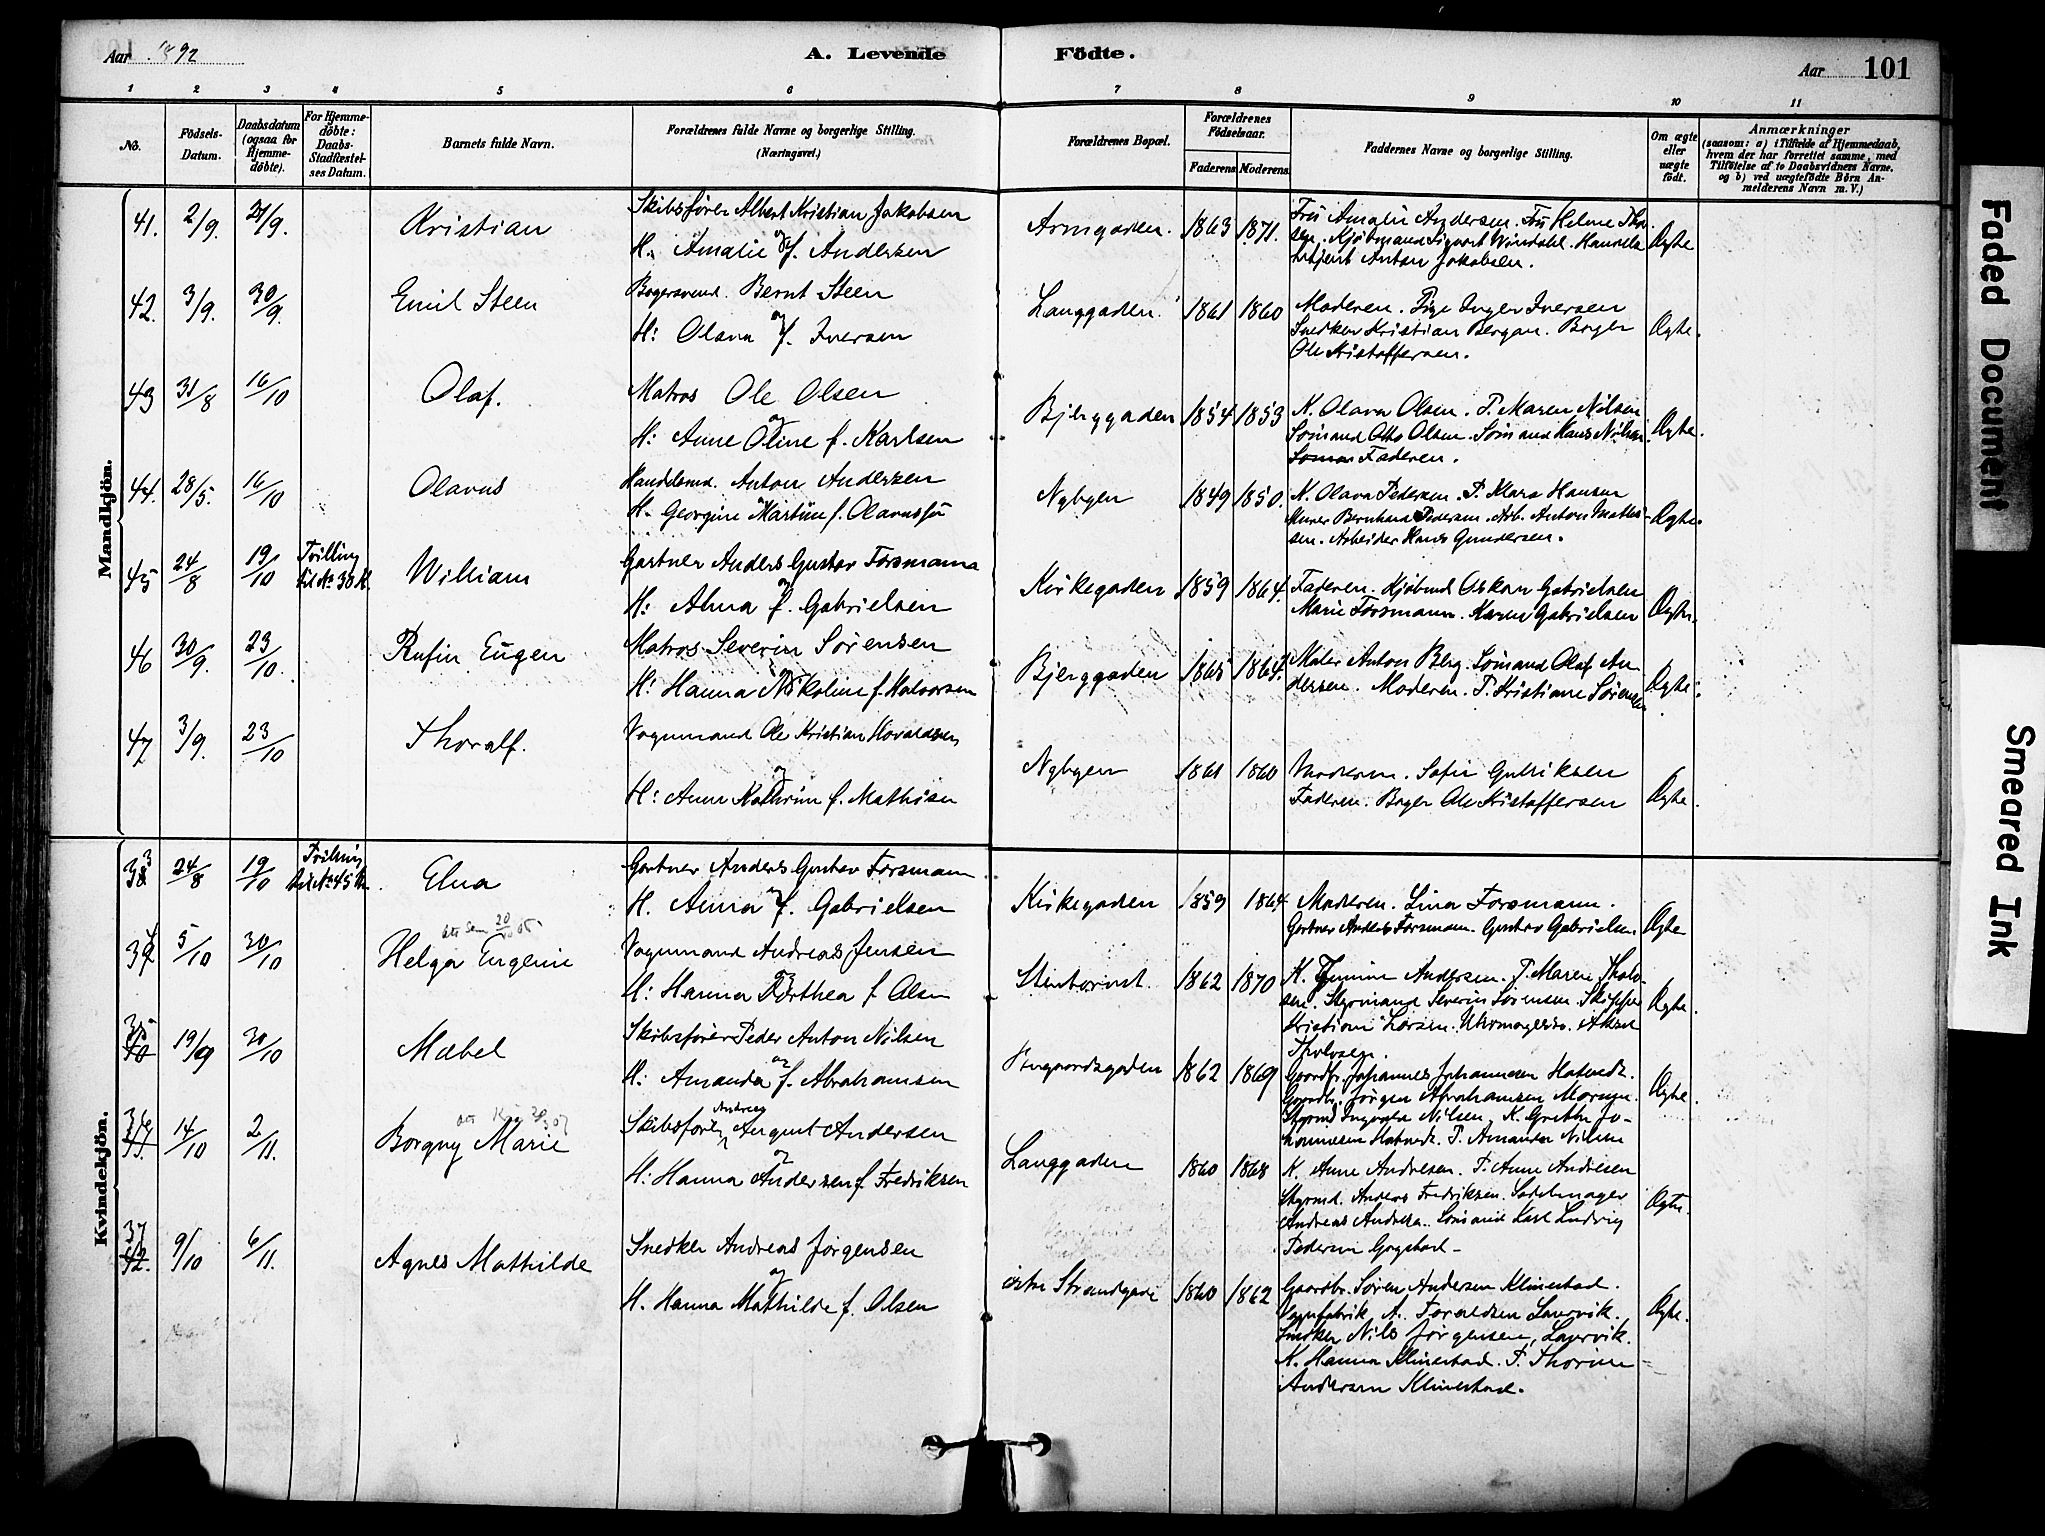 Aar 1892
A. Levende Födte.
Aar 101
1 2 3 4 5 6 7 8 9 10 11
No.
Födsels-Datum.
Daabsdatum (ogsaa for Hjemme-döbte).
For Hjemme-döbte: Daabs-Stadfæstel-ses Datum.
Barnets fulde Navn.
Forældrenes fulde Navne og borgerlige Stilling.
(Næringsvei.)
Forældrenes Bopæl.
Forældrenes Födselsaar.
Faderens Moderens
Faddernes Navne og borgerlige Stilling.
Om ægte eller uægte födt.
Anmærkninger
(saasom: a) i Tilfælde af Hjemmedaab,
hvem der har forrettet samme, med
Tilföielse af to Daabsvidners Navne,
og b) ved uægtefödte Börn An-
melderens Navn m. V.)
Mandkjön.
41. 2/9. 24/9. Kristian
Skibsfører Albert Kristian Jakobsen
og
H: Amalie f. Andersen
Armgaden. 1863 1871.
Fru Amalie Andersen. Fru Helene Tho-
sen. Kjøbmand Sigvart Windahl. Handels
betjent Anton Jakobsen.
Ægte
42. 3/9. 30/9. Emil Steen
Bagersvend. Bernt Steen
og
H: Olava f. Iversen
Langgaden. 1861 1860
Moderen. Pige Inger Iversen
Snedker Kristian Bergan. Bager
Ole Kristoffersen.
Ægte.
43 31/8 16/10 Olaf.
Matros Ole Olsen
og
H: Anne Oline f. Karlsen
Bjerggaden 1854 1853
K. Olava Olsen. P. Maren Nilsen
Sømand Otto Olsen. Sømand Hans Nilsen
Faderen.
Ægte.
44. 28/5. 16/10 Olavus
Handelsmd. Anton Andersen
H. Georgine Martine f. Olavusdr
Nybyen 1849 1850.
K. Olava Pedersen. P. Mara Hansen
Murer Bernhard Pedersen. Arb. Anton Mathi-
sen. Arbeider Hans Gundersen.
Ægte.
45 24/8 19/10 Tvilling
til No 38 K.
William
Gartner Anders Gustav Forsmann
og
H: Alma f. Gabrielsen
Kirkegaden 1859 1864.
Faderen. Kjøbmd Oskar Gabrielsen
Marie Forsmann. Karen Gabrielsen
Ægte.
46 30/9. 23/10. Rufin Eugen
Matros Severin Sørensen
og
H: Hanna Nikoline f. Halvorsen
Bjerggaden 1865 1864.
Maler Anton Berg. Sømand Olaf An
dersen. Moderen. P. Kristiane Sørensen
Ægte.
47 3/9. 23/10 Thoralf.
Vognmand Ole Kristian Hovaldsen
og
H: Anne Kathrine f. Mathisen
Nybyen 1861 1860
Moderen. Sofie Gulliksen
Faderen. Bager Ole Kristoffersen
Ægte.
Kvindekjön.
33 24/8 19/10 Tvilling
til No 45 M.
Elna
Gartner Anders Gustav Forsmann
og
H. Alma f. Gabrielsen
Kirkegaden 1859 1864
Moderen. Lina Forsmann.
Gartner Anders Forsmann. Gustav Gabrielsen
Ægte
34 5/10 30/10
Helga Eugenie
Vognmand Andreas Jensen
og
H: Hanna Dorthea f. Olsen
1862 1870
K. Andersen. P. Maren Tholv-
sen. Styrmand Severin Sørensen. Skipper
Kristian Larsen. Uhrmagersv. Aksel
Tholvsen.
Ægte.
35 19/9 30/10 Mabel
Skibsfører Peder Anton Nilsen
og
H: Amanda f. Abrahamsen
1862 1869
Gaardbr. Johannes Johannesen Hatvedt.
Gaardbr. Jørgen Abrahamsen
Styrmd Ingvald Nilsen. K. Grethe Jo-
hannesen Hatvedt. P. Amanda Nilsen
Ægte.
36 14/10 2/11.
Borgny Marie
Skibsfører Andreas August Andersen
og
H: Hanna Andersen f. Fredriksen
Langgaden 1860 1868
K. Anne Andresen. P. Anne Andresen
Styrmd. Anders Fredriksen. Sadelmager
Andreas Andresen. Sømand Karl Ludvig
Pedersen Gogstad.
Ægte.
37 9/10 6/11. Agnes Mathilde
Snedker Andreas Jørgensen
og
H. Hanna Mathilde f. Olsen
østre Strandgade 1860 1862
Gaardbr. Søren Andersen Klinestad.
Vognfabrik. A. Toraldsen Laurvik.
Snedker Nils Jørgensen, Laurvik.
K. Hanna Klinestad. P. Thorine
Andersen Klinestad.
Ægte.
Faded Document
Smeared Ink